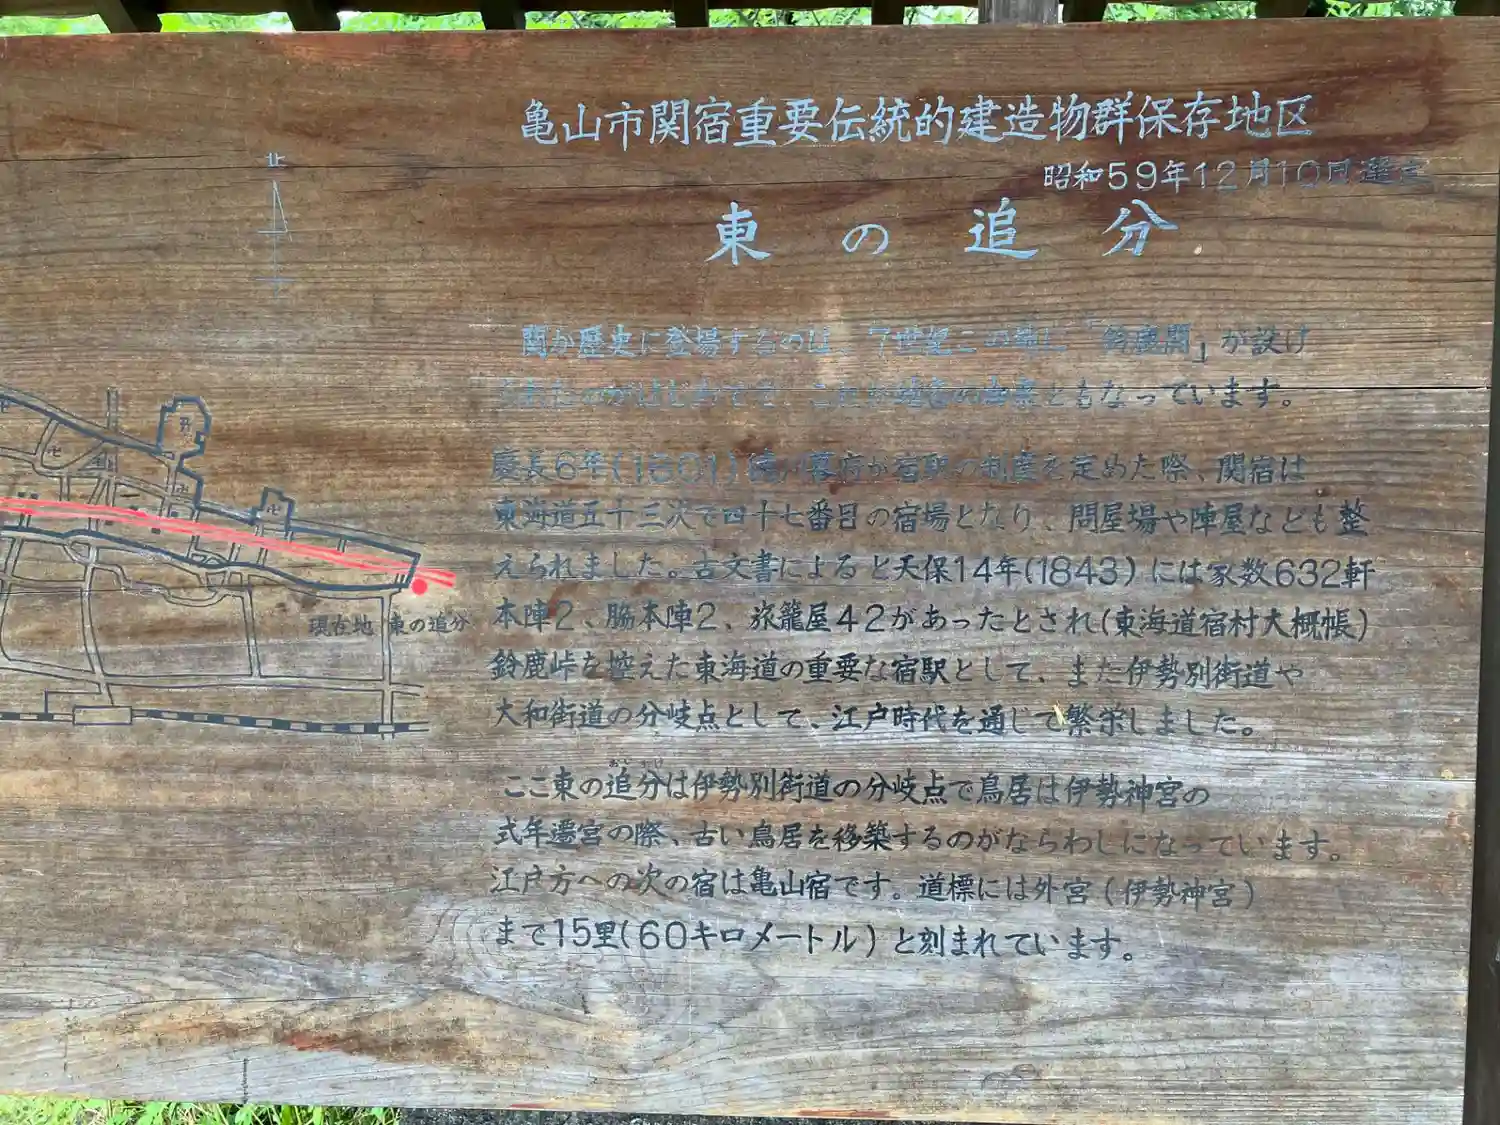 亀山市関宿重要伝統的建造物群保存地区
昭和59年12月10日選定
東の追分
北
関が歴史に登場するのは、7世紀この地に「鈴鹿関」が設け
られたのがはじめてで、これが地名の由来ともなっています。
慶長6年(1601)徳川幕府が宿駅の制度を定めた際、関宿は
東海道五十三次で四十七番目の宿場となり、問屋場や陣屋なども整
えられました。古文書によると天保14年(1843)には家数632軒
本陣2、脇本陣2、旅籠屋42があったとされ(東海道宿村大概帳)
鈴鹿峠を控えた東海道の重要な宿駅として、また伊勢別街道や
大和街道の分岐点として、江戸時代を通じて繁栄しました。
おいわけ
ここ東の追分は伊勢別街道の分岐点で鳥居は伊勢神宮の
式年遷宮の際、古い鳥居を移築するのがならわしになっています。
江戸方への次の宿は亀山宿です。道標には外宮(伊勢神宮)
まで15里(60キロメートル)と刻まれています。
現在地 東の追分